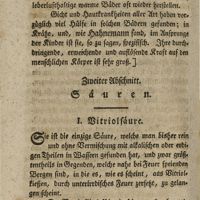 leberlufthaltige warme Bäder oft wieder herstellen.
Gicht und Hautkrankheiten aller Art haben vor-
züglich viel Hülfe in solchen Bädern gefunden; in
Krätze, und, wie Hahnemann fand, im Ansprunge
der Kinder ist sie, so zu sagen, spezifisch. Ihre durch-
dringende, erweichende und auflösende Kraft auf den
menschlichen Körper ist sehr groß.]
Zweiter Abschnitt.
Säuren.
1. Vitriolsäure.
Sie ist die einzige Säure, welche man bisher rein
und ohne Vermischung mit alkalischen oder erdi-
gen Theilen in Wassern gefunden hat, und zwar größ-
tentheils in Gegenden, welche nahe bei Feuer speienden
Bergen sind, wo sie, wie es scheint, aus Vitriol-
kießen, durch unterirdisches Feuer zersetzt, zu gelan-
gen scheint.